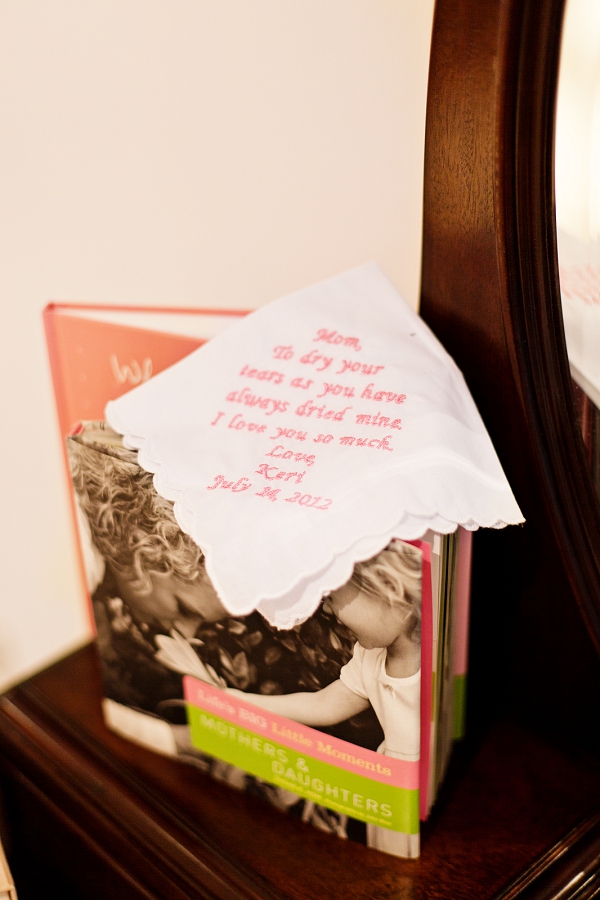 We
Mom,
To dry your
tears as you have
always dried mine.
I love you so much.
Love,
Keri
July 14, 2012
Life's BIG Little Moments
MOTHERS &
DAUGHTERS